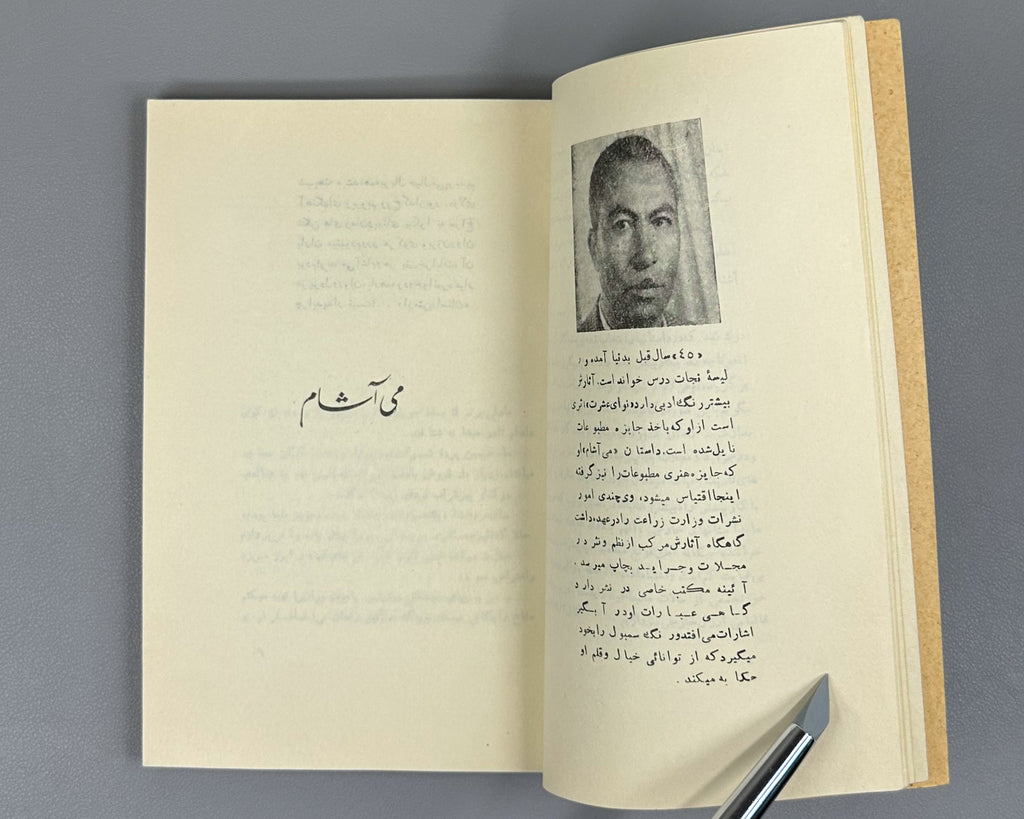 می آشام
«٤٥» سال قبل بدنیا آمده و
لیسۀ نجات درس خوانده است. آثارش
بیشتر رنگ ادبی دارد «نوای عشرت» اثری
است از او که باخذ جایزه مطبوعات
نایل شده است. داستان «می آشام» او
که جایزه هنری مطبوعات را نیز گرفته
اینجا اقتباس میشود، وی چندی امور
نشرات وزارت زراعت را در عهده داشت
گاهگاه آثارش مرکب از نظم و نثر در
مجلات و جراید بچاپ میرسد.
آئینه مکتب خاصی در نثر دارد
گاهی عبارات او در آبگیر
اشارات می افتد و رنگ سمبول را بخود
میگیرد که از توانائی خیال و قلم او
حکایه میکند.